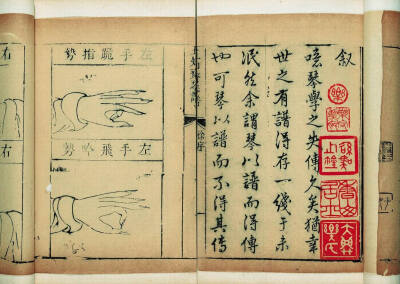 叙
噫琴學之失傳久矣猶幸
世之有譜得存一綫于未
泯然余謂琴以譜而得傳
也可琴以譜而不得其傳
五知齋琴譜
序
左手跪指勢
左手飛吟勢
右
右